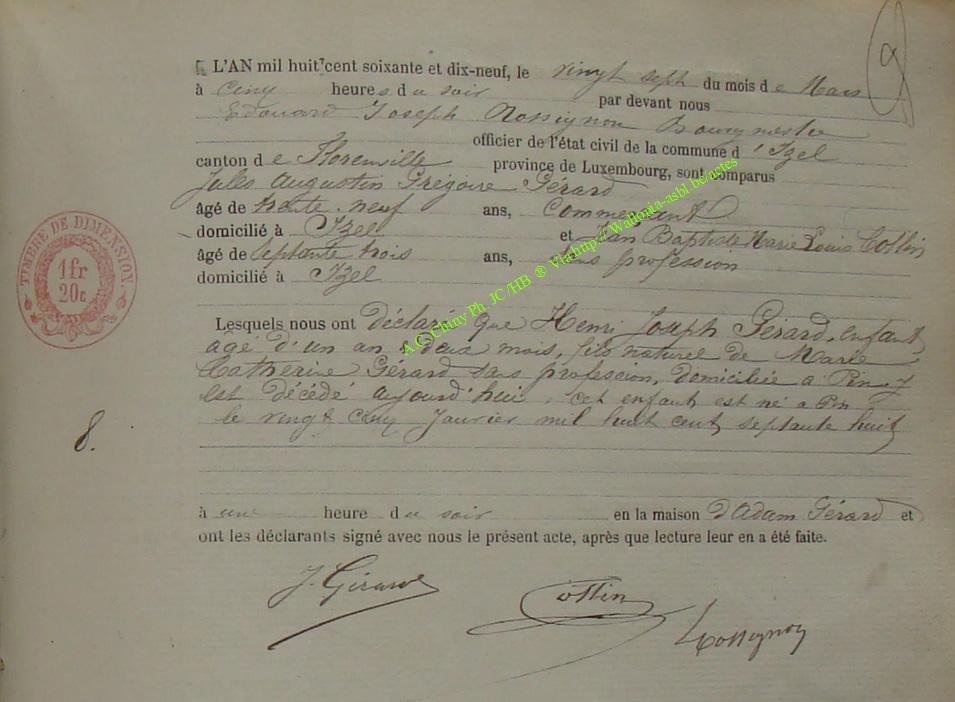 9
L'AN mil huit cent soixante et dix-neuf, le vingt sept du mois de Mars
à cinq heures du soir par devant nous
Edouard Joseph Rossignon Bourgmestre
officier de l'état civil de la commune d'Izel
canton de Florenville province de Luxembourg, sont comparus
Jules Augustin Grégoire Gérard
âgé de trente neuf ans, Commerçant
domicilié à Izel et Jean Baptiste Marie Louis Collin
âgé de septante trois ans, sans profession
domicilié à Izel
Lesquels nous ont déclaré que Henri Joseph Gérard, enfant
agé d'un an & deux mois, fils naturel de Marie
Catherine Gérard sans profession, domiciliée à Pin, y
est décédé aujourd'hui. Cet enfant est né à Pin
le vingt cinq Janvier mil huit cent septante huit
8.
à une heure du soir en la maison d'Adam Gérard et
ont les déclarants signé avec nous le présent acte, après que lecture leur en a été faite.
J. Gérard
Collin
Rossignon
TIMBRE DE DIMENSION.
1fr
20c
A.C. Chiny Ph. JC/HB ® Via http://Wallonia-asbl.be/actes